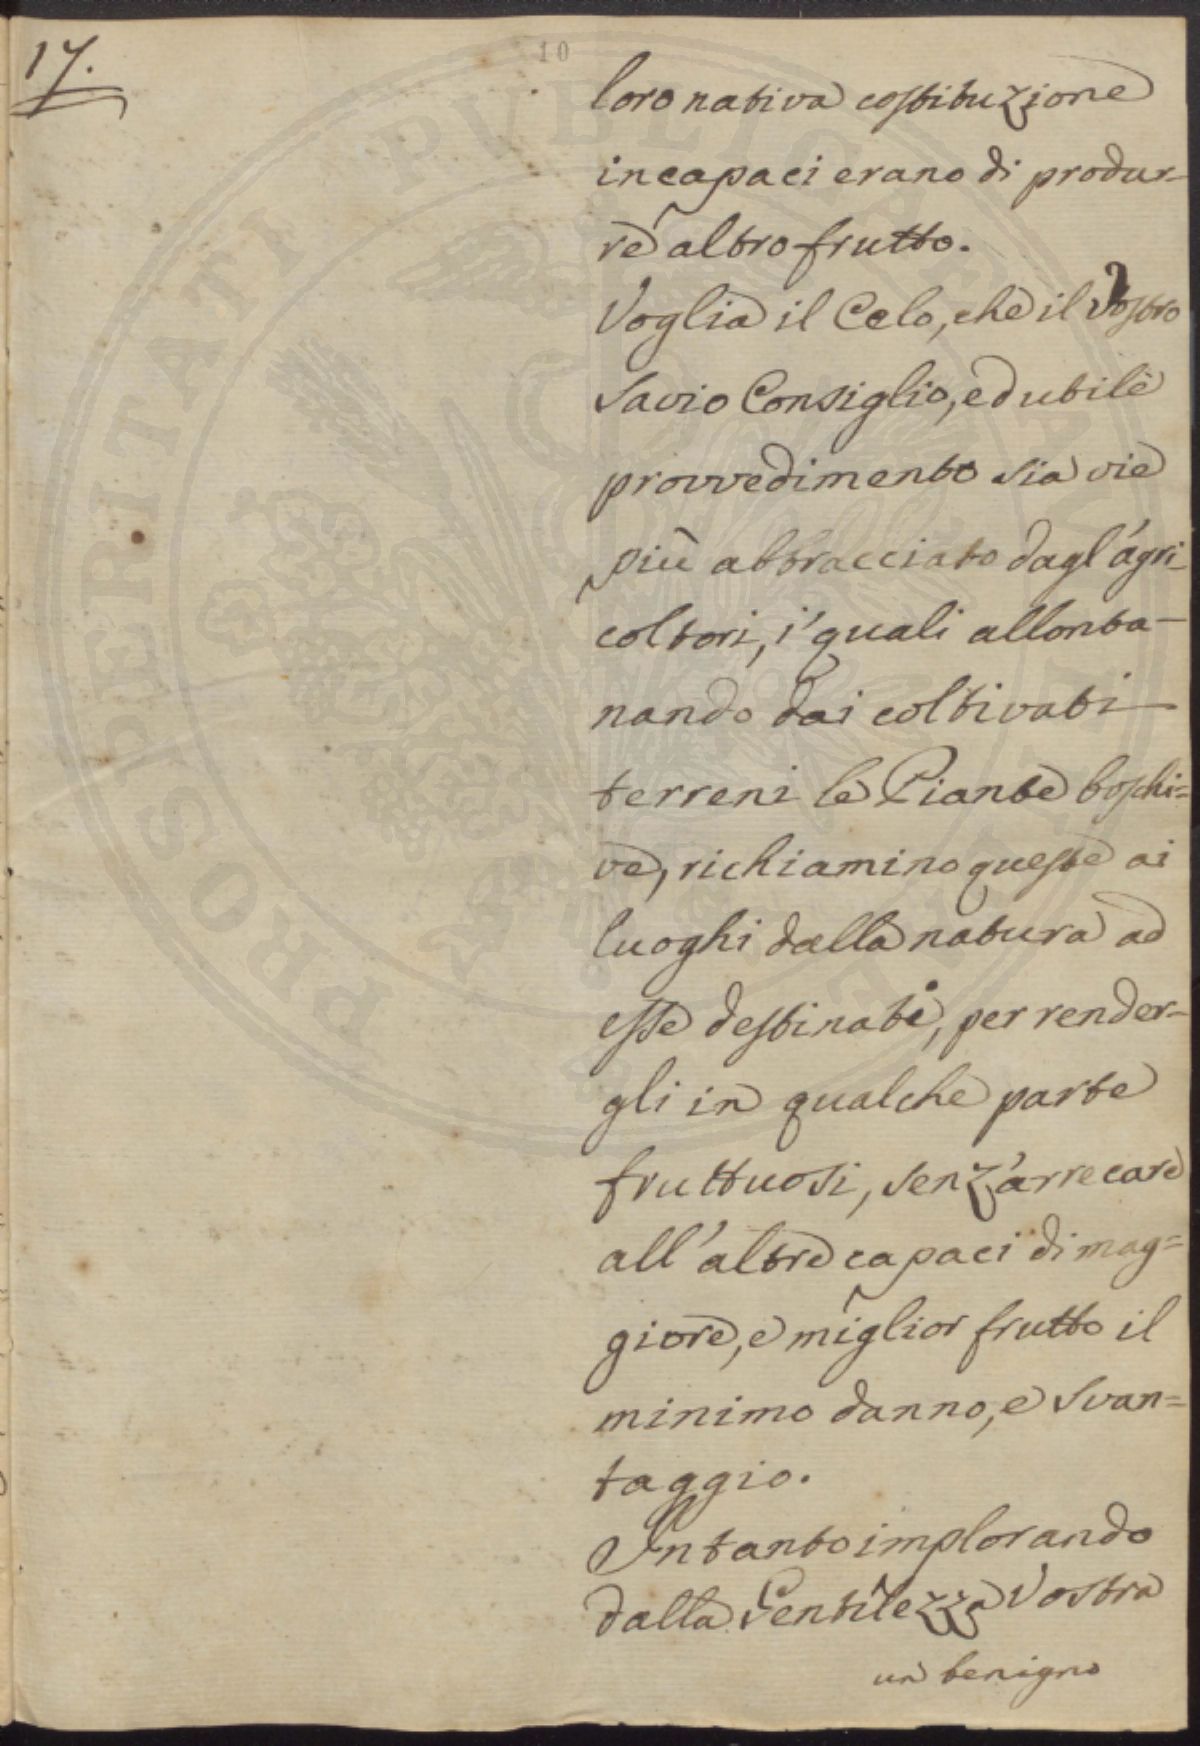 17.
10
loro nativa costituzione
incapaci erano di produr-
re altro frutto.
Voglia il Celo, che il Vostro
savio Consiglio, ed utile
provvedimento sia vie
più abbracciato dagl'agri-
coltori, i' quali allonta-
nando dai coltivati
terreni le Piante boschi=
ve, richiamino queste ai
luoghi dalla natura ad
esse destinati, per render-
gli in qualche parte
fruttuosi, senz'arrecare
all'altre capaci di mag=
giore, e miglior frutto il
minimo danno, e svan=
taggio.
Intanto implorando
dalla Gentilezza Vostra
un benigno
PROSPERITATI PUBLICAE